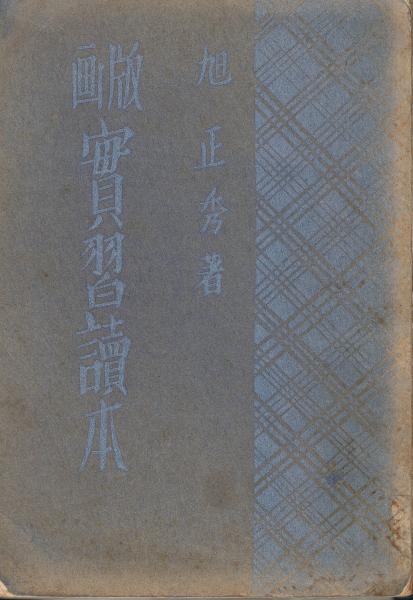 旭正秀著
版画
實習讀本